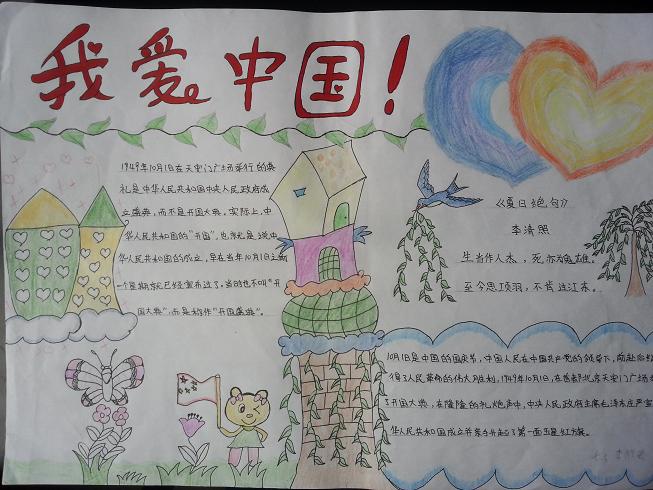 我爱中国！
1949年10月1日在天安门广场举行的典
礼是中华人民共和国中央人民政府成
立盛典，而不是开国大典。实际上，中
华人民共和国的“开国”，也就是说中
华人民共和国的成立，早在当年10月1日之前
一个星期就已经宣布过了，当时也不叫“开
国大典”，而是称作“开国盛典”。
《夏日绝句》
李清照
生当作人杰，死亦为鬼雄。
至今思项羽，不肯过江东。
10月1日是中国的国庆节，中国人民在中国共产党的领导下，前赴后继
得了人民革命的伟大胜利，1949年10月1日，在首都北京天安门广场
了开国大典，在隆隆的礼炮声中，中央人民政府主席毛泽东庄严宣
华人民共和国成立并亲手升起了第一面五星红旗。